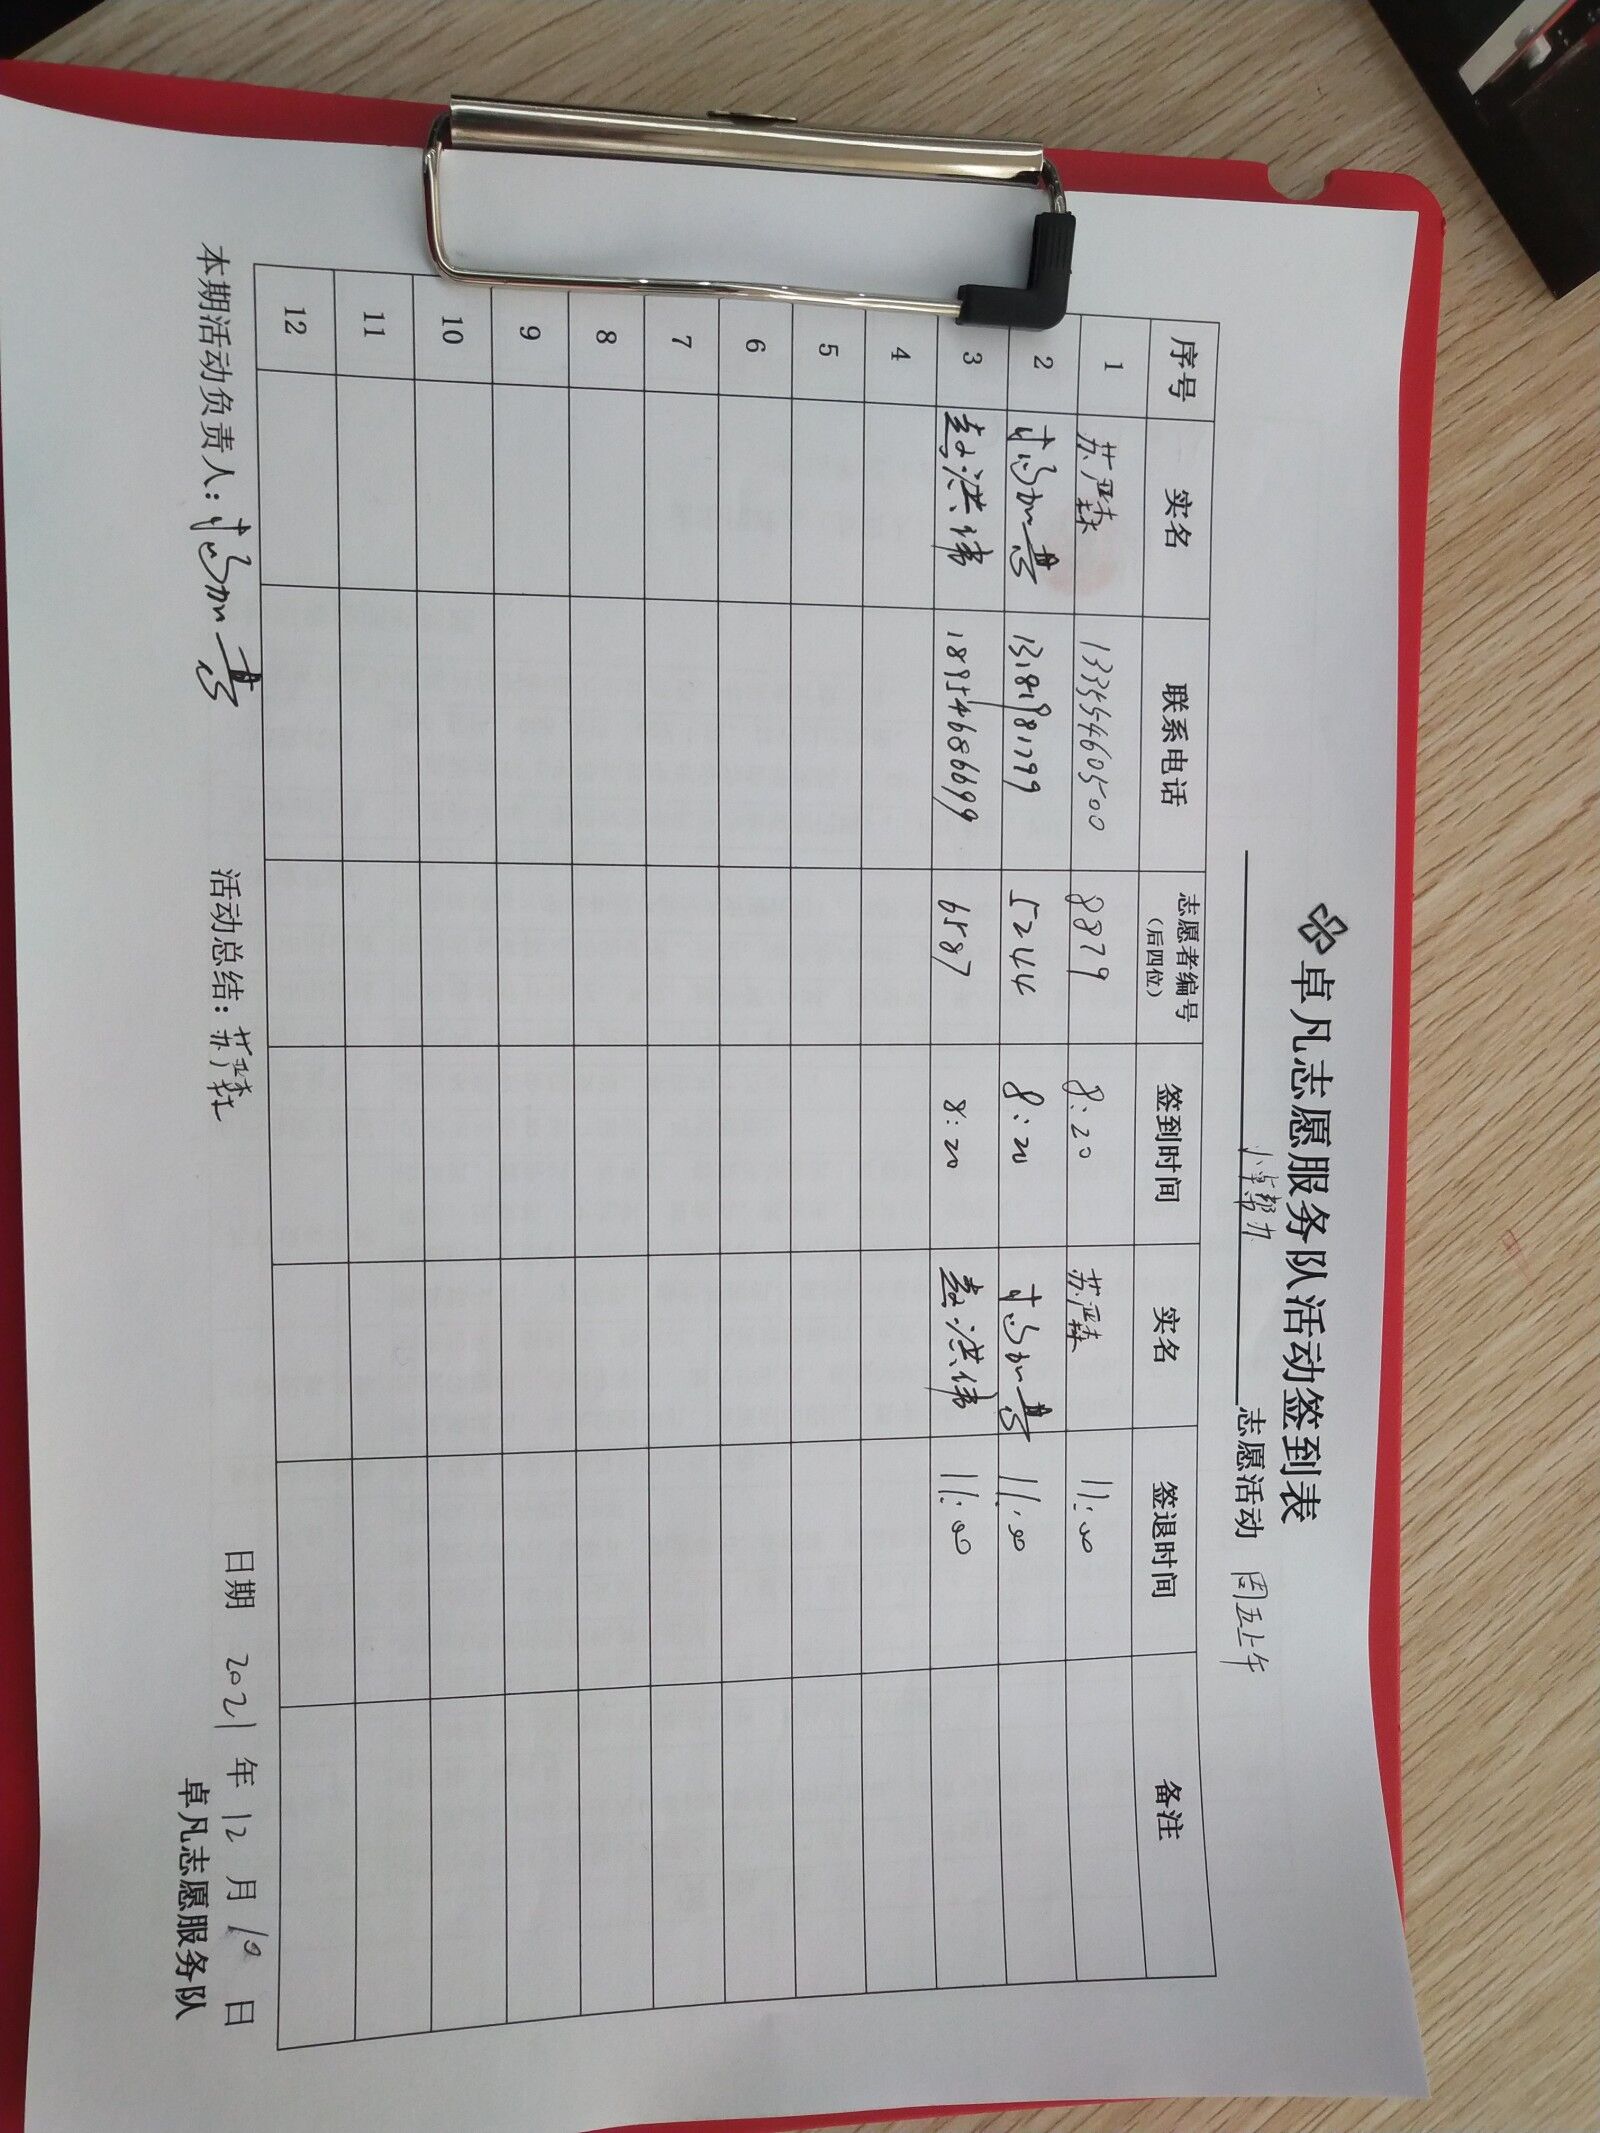 卓凡志愿服务队活动签到表
志愿活动 周五上午
序号 实名 联系电话 志愿者编号（后四位） 签到时间 实名 签退时间 备注
1 苏严森 13345460500 8879 8:20 苏严森 11:00
2 13181981799 5244 8:20 11:00
3 赵洪伟 18954686699 6587 8:20 赵洪伟 11:00
4
5
6
7
8
9
10
11
12
本期活动负责人： 活动总结：苏严森 日期 2021 年 12 月 10 日
卓凡志愿服务队